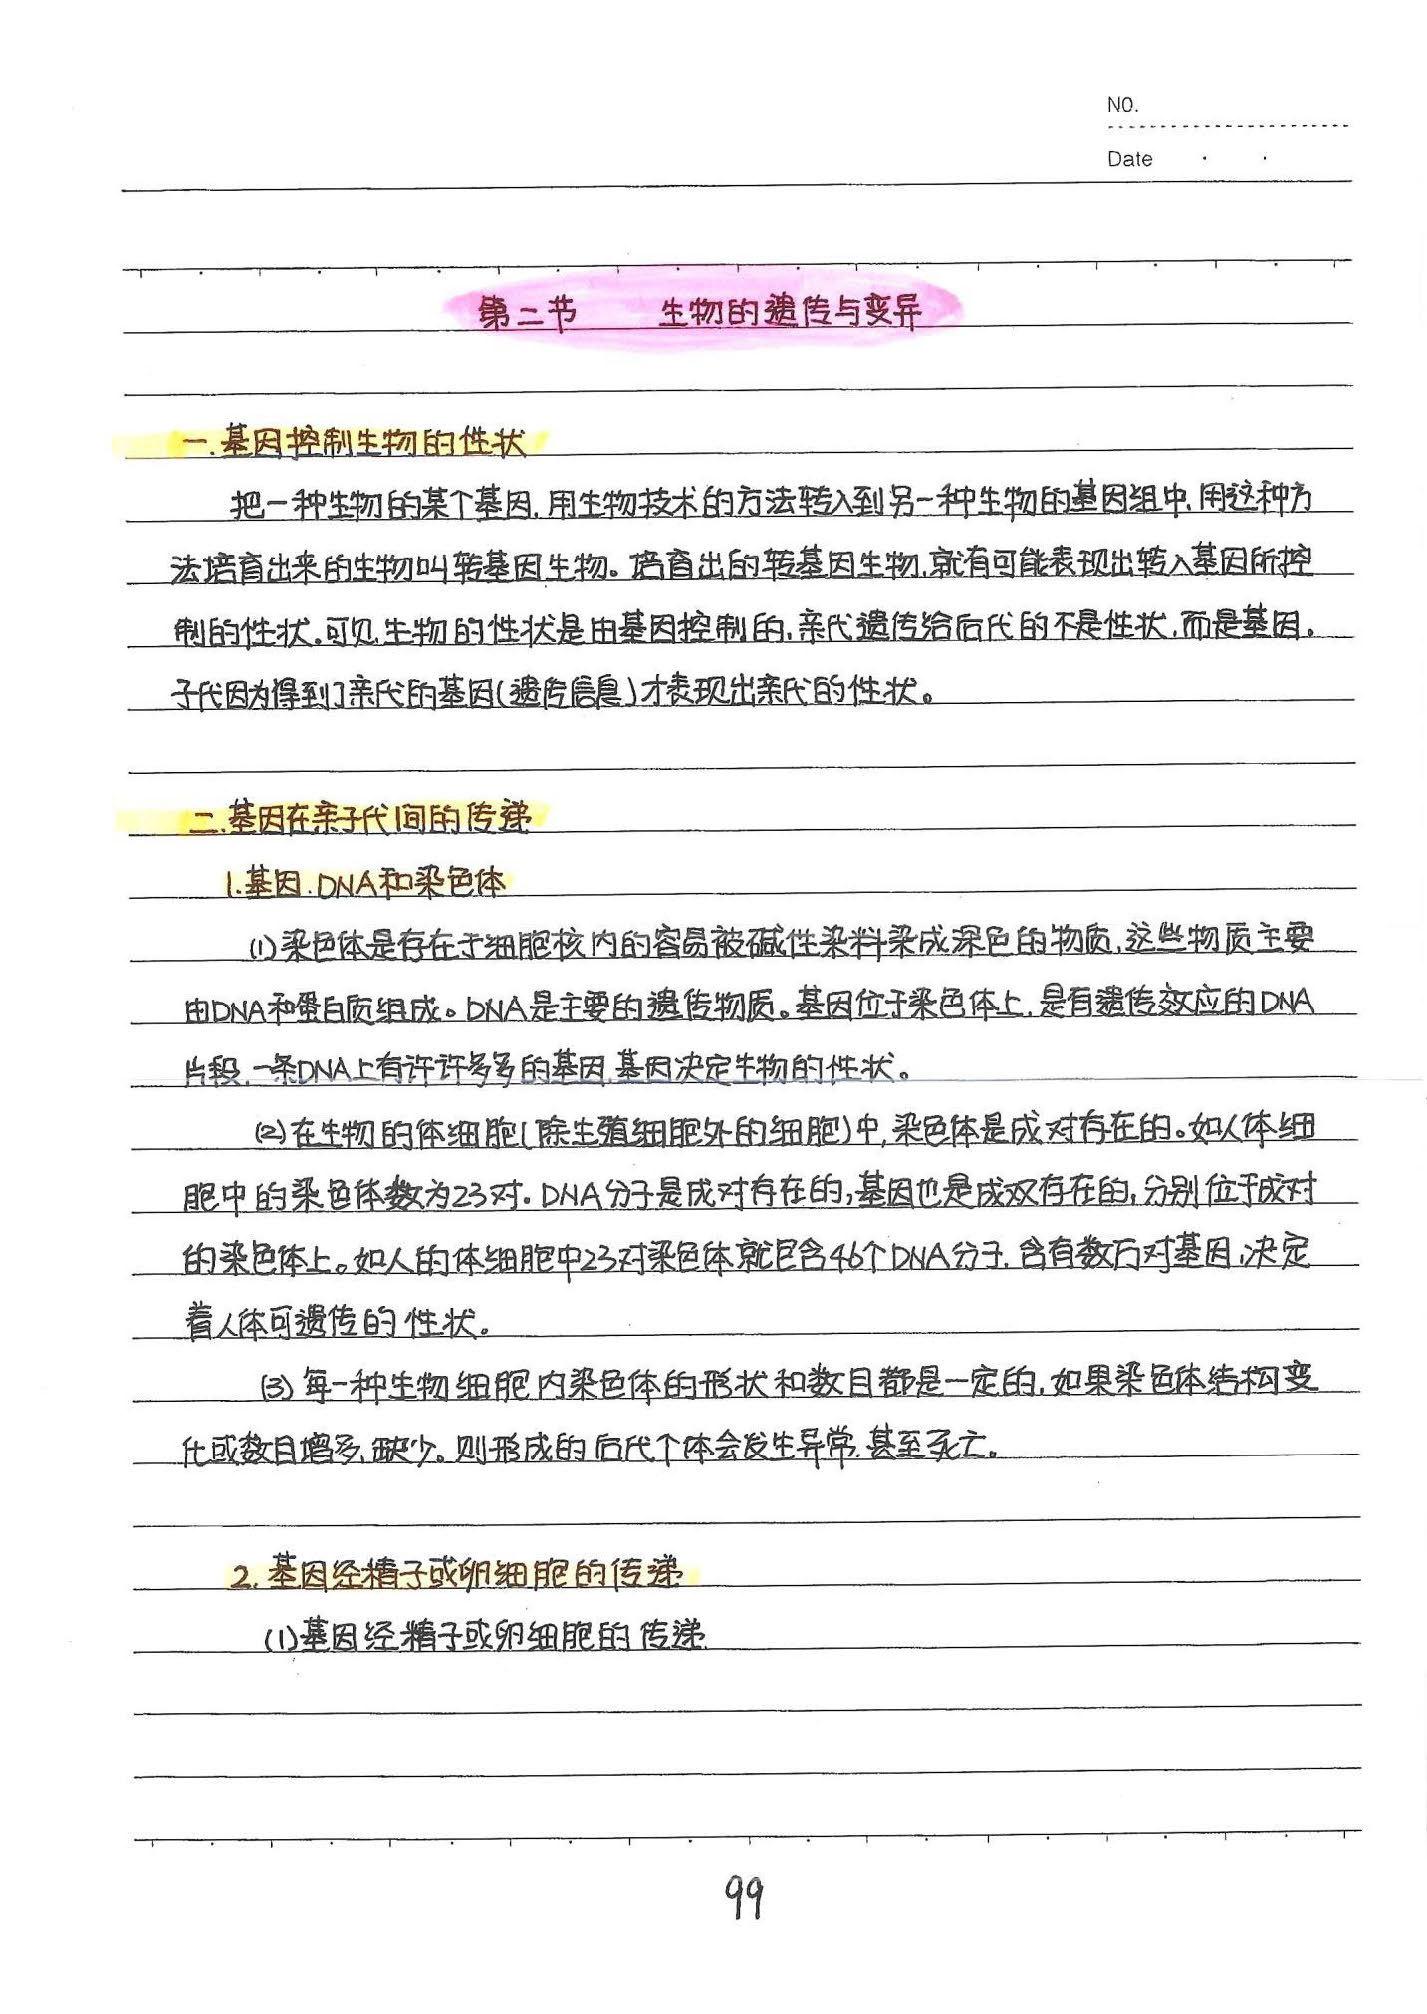 NO.
Date
第二节 生物的遗传与变异
一.基因控制生物的性状
把一种生物的某个基因,用生物技术的方法转入到另一种生物的基因组中,用这种方
法培育出来的生物叫转基因生物。培育出的转基因生物,就有可能表现出转入基因所控
制的性状。可见,生物的性状是由基因控制的,亲代遗传给后代的不是性状,而是基因。
子代因为得到了亲代的基因(遗传信息)才表现出亲代的性状。
二.基因在亲子代间的传递
1.基因.DNA和染色体
(1)染色体是存在于细胞核内的容易被碱性染料染成深色的物质,这些物质主要
由DNA和蛋白质组成。DNA是主要的遗传物质。基因位于染色体上,是有遗传效应的DNA
片段,一条DNA上有许许多多的基因,基因决定生物的性状。
(2)在生物的体细胞(除生殖细胞外的细胞)中,染色体是成对存在的。如人体细
胞中的染色体数为23对。DNA分子是成对存在的,基因也是成双存在的,分别位于成对
的染色体上。如人的体细胞中23对染色体就包含46个DNA分子,含有数万对基因,决定
着人体可遗传的性状。
(3)每一种生物细胞内染色体的形状和数目都是一定的,如果染色体结构变
化或数目增多、缺少。则形成的后代个体会发生异常,甚至死亡。
2.基因经精子或卵细胞的传递
(1)基因经精子或卵细胞的传递
99